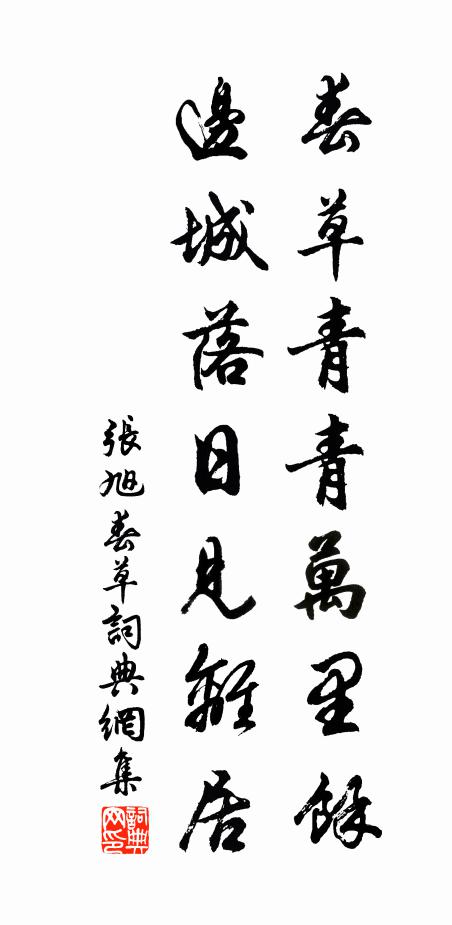 春草青青萬里餘
邊城落日見離居
張旭春草詞典網集
詞典网印